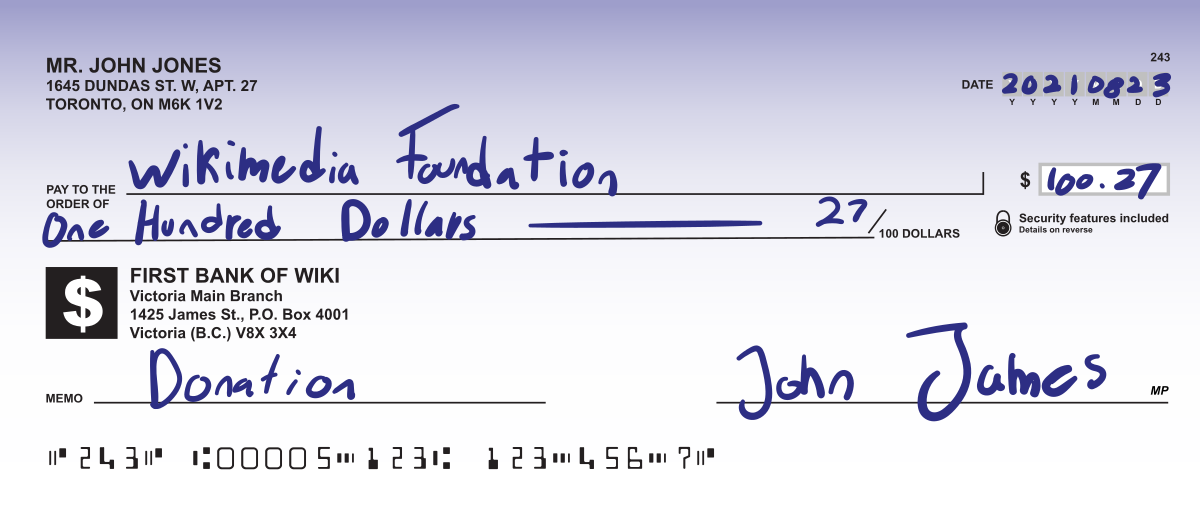 243
MR. JOHN JONES
1645 DUNDAS ST. W, APT. 27
TORONTO, ON M6K 1V2
DATE 20210823
Y Y Y Y M M D D
PAY TO THE ORDER OF Wikimedia Foundation $ 100.27
One Hundred Dollars 27/100 DOLLARS
Security features included
Details on reverse
$
FIRST BANK OF WIKI
Victoria Main Branch
1425 James St., P.O. Box 4001
Victoria (B.C.) V8X 3X4
MEMO Donation John James MP
⑈243⑈ ⑆00005⑉123⑆ 123⑉456⑉7⑈